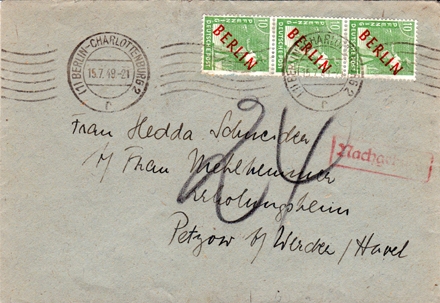 (1) BERLIN-CHARLOTTENBURG 2
15.7.49.-21
c
10 BERLIN
10 BERLIN
10 BERLIN
DEUTSCHE POST
Frau Hedda Schneider
b/ Frau Mehlhemmer
Erholungsheim
Petzow b/ Werder / Havel
24